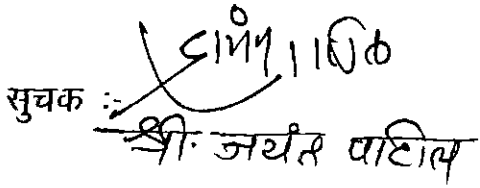 सुचक :-
श्री. जयंत पाटील